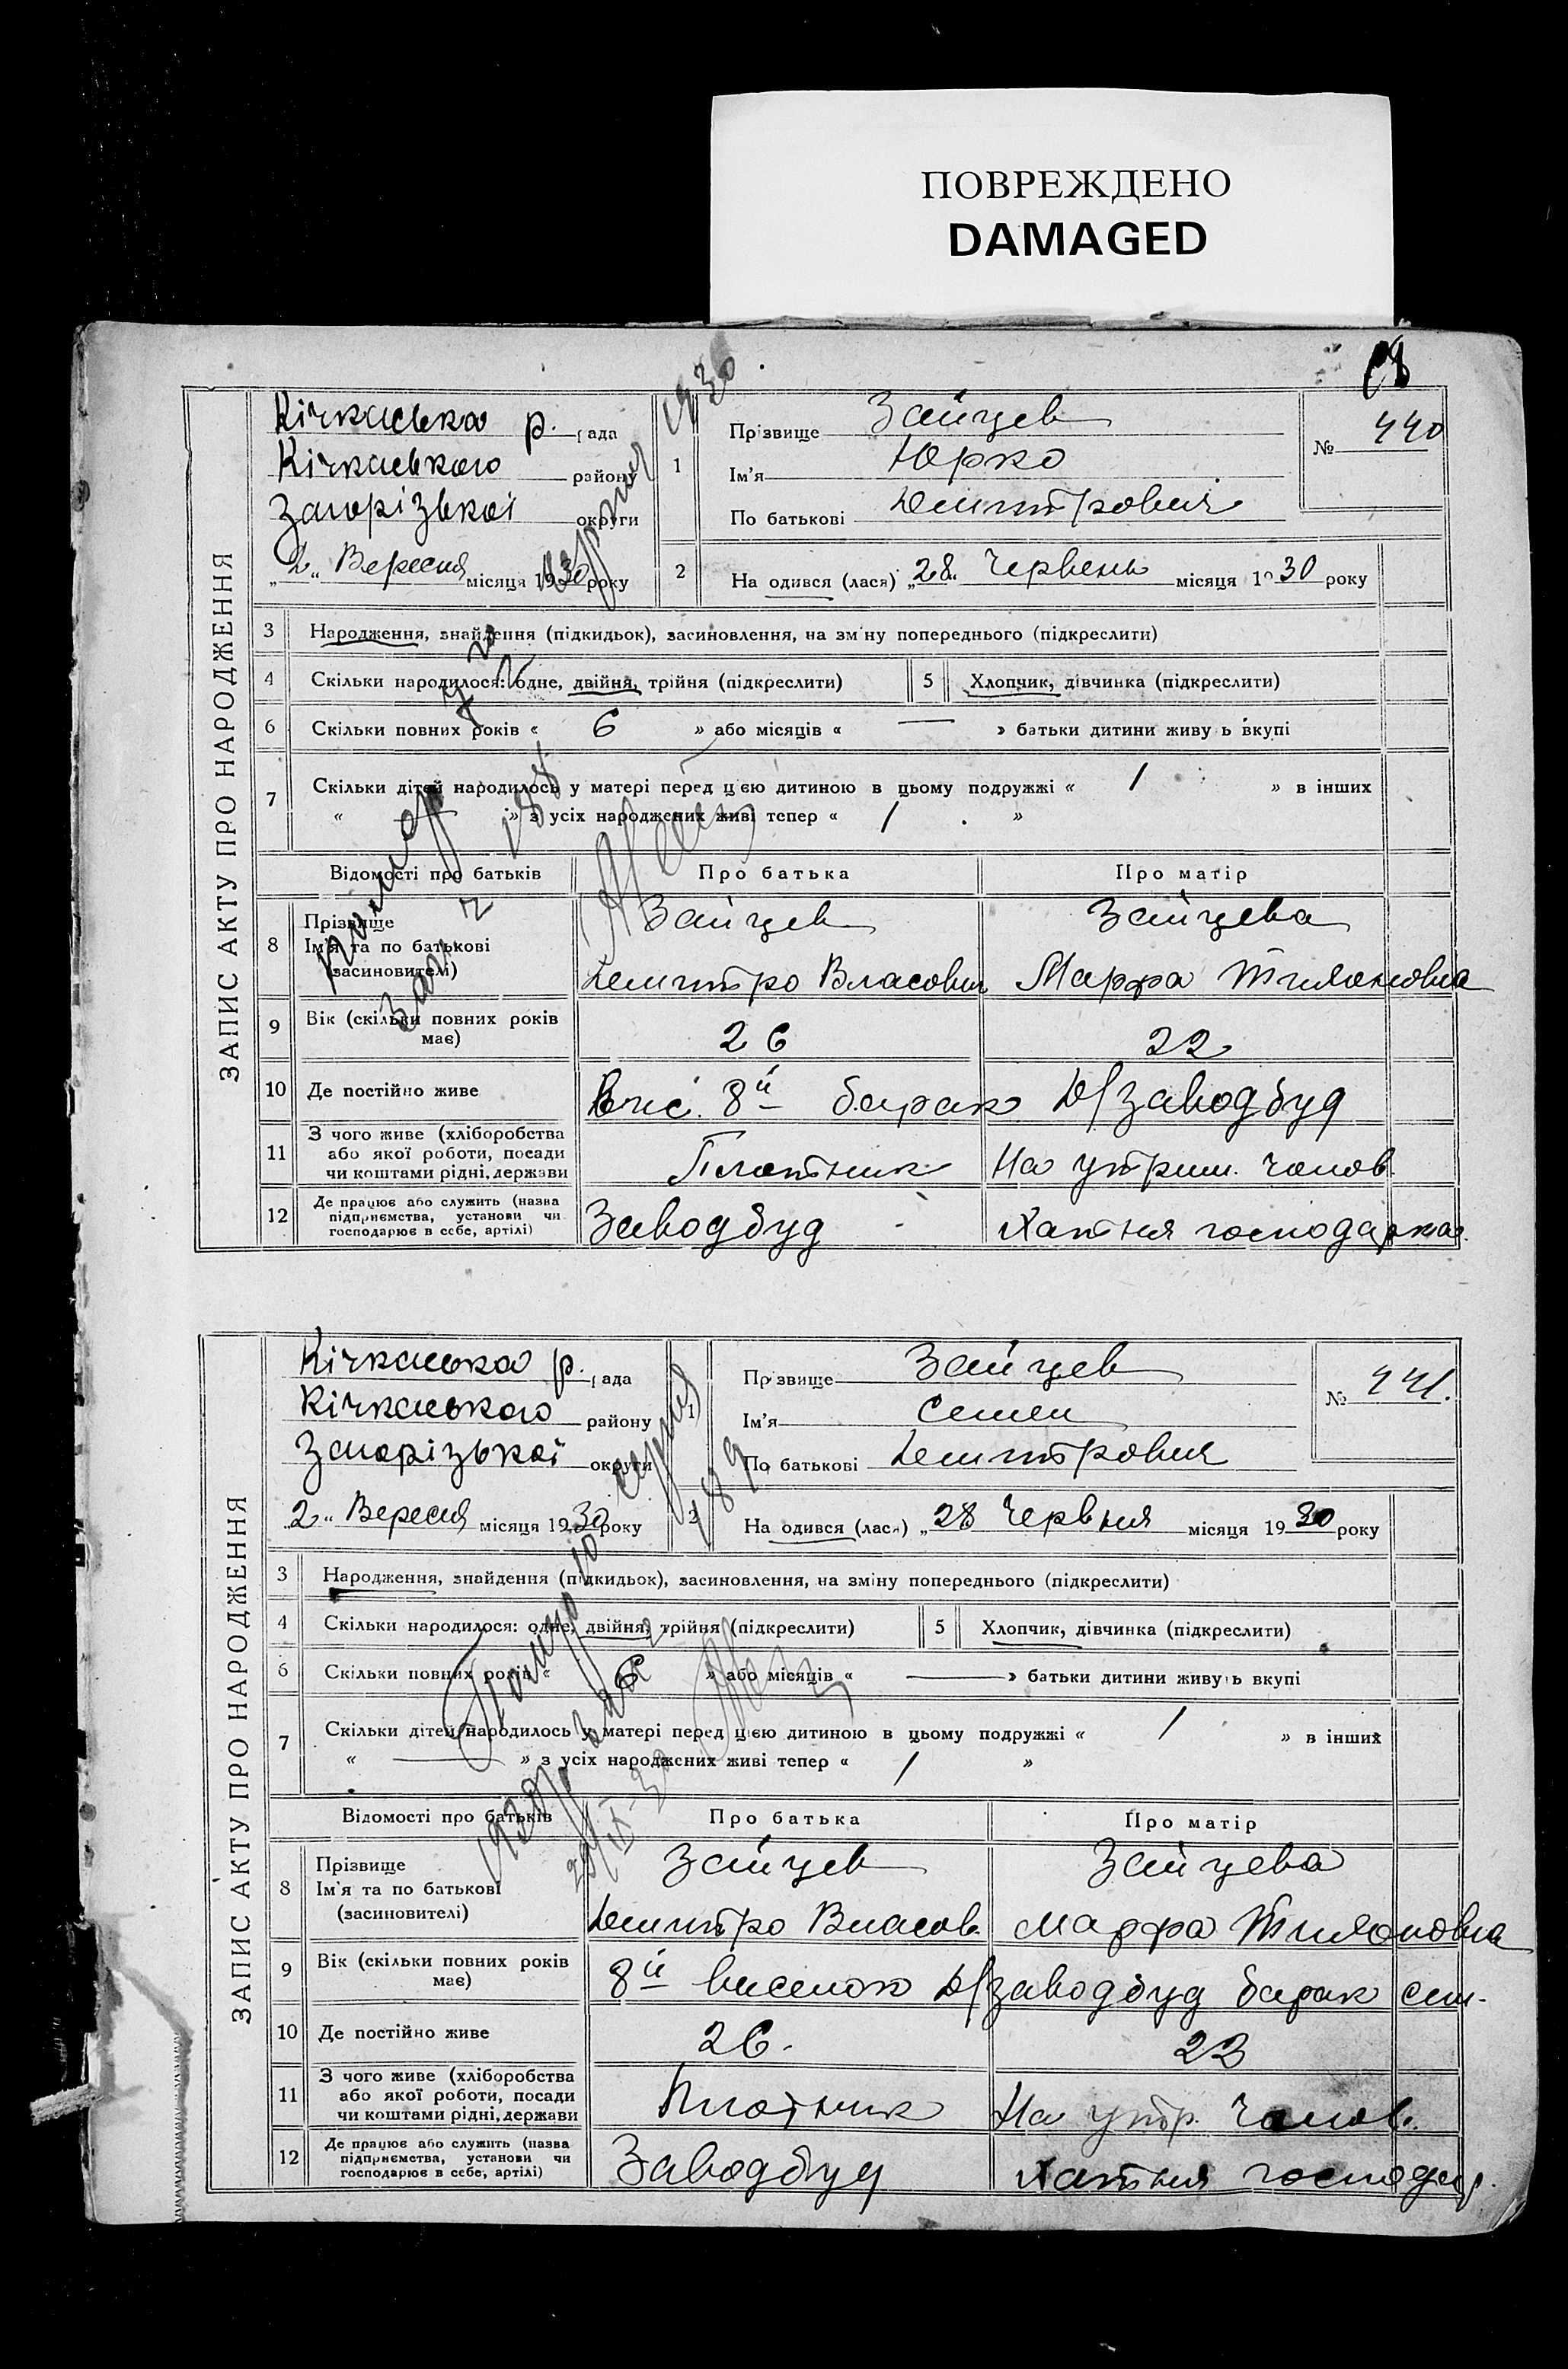 ПОВРЕЖДЕНО
DAMAGED
ЗАПИС АКТУ ПРО НАРОДЖЕННЯ
Кічкаська р. рада
Кічкаського району
Запорізької округи
„2" Вересня місяця 1930 року
1
Прізвище Зайцев
Ім'я Юрко
По батькові Демитрович
№ 440
2
Народився (лася) „28" Червень місяця 1930 року
3 Народження, знайдення (підкидьок), засиновлення, на зміну попереднього (підкреслити)
4 Скільки народилося: одне, двійня, трійня (підкреслити) 5 Хлопчик, дівчинка (підкреслити)
6 Скільки повних років « 6 » або місяців « — » батьки дитини живуть вкупі
7 Скільки дітей народилось у матері перед цією дитиною в цьому подружжі « 1 » в інших
« — » з усіх народжених живі тепер « 1 »
Відомості про батьків Про батька Про матір
8 Прізвище
Ім'я та по батькові
(засиновителі)
Зайцев Зайцева
Демитро Власович Марфа Тихоновна
9 Вік (скільки повних років має) 26 22
10 Де постійно живе 8й барак Д/заводбуд
11 З чого живе (хліборобства
або якої роботи, посади
чи коштами рідні, держави
Плотник На утрим. чолов.
12 Де працює або служить (назва
підприємства, установи чи
господарює в себе, артілі)
Заводбуд Хатня господарка
ЗАПИС АКТУ ПРО НАРОДЖЕННЯ
Кічкаська р. рада
Кічкаського району
Запорізької округи
„2" Вересня місяця 1930 року
1
Прізвище Зайцев
Ім'я Семен
По батькові Демитрович
№ 441.
2
Народився (лася) „28 Червня місяця 1930 року
3 Народження, знайдення (підкидьок), засиновлення, на зміну попереднього (підкреслити)
4 Скільки народилося: одне, двійня, трійня (підкреслити) 5 Хлопчик, дівчинка (підкреслити)
6 Скільки повних років « 6 » або місяців « — » батьки дитини живуть вкупі
7 Скільки дітей народилось у матері перед цією дитиною в цьому подружжі « 1 » в інших
« — » з усіх народжених живі тепер « 1 »
Відомості про батьків Про батька Про матір
8 Прізвище
Ім'я та по батькові
(засиновителі)
Зайцев Зайцева
Демитро Власов. Марфа Тихоновна
9 Вік (скільки повних років має) 8й виселок Д/заводбуд барак сем.
10 Де постійно живе 26. 22
11 З чого живе (хліборобства
або якої роботи, посади
чи коштами рідні, держави
Плотник На утр. чолов.
12 Де працює або служить (назва
підприємства, установи чи
господарює в себе, артілі)
Заводбуд Хатня господар.